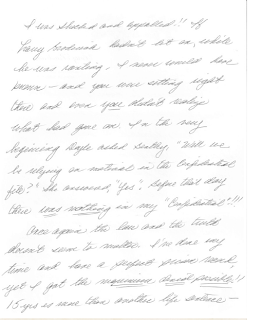 I was shocked and appalled!! If
Larry hadn't let on, while
he was ranting, I never would have
known – and you were sitting right
there and even you didn't really
what had gone on. In the very
beginning asked "Will we
be relying on material in the Confidential
file?" She answered, 'yes'. Before that day
there was nothing in my "Confidential"!!!
Once again the law and the truth
doesn't seem to matter. I'm doing my
time and have a perfect prison record,
yet I got the maximum denial possible!!
15 yrs is more than another life sentence –